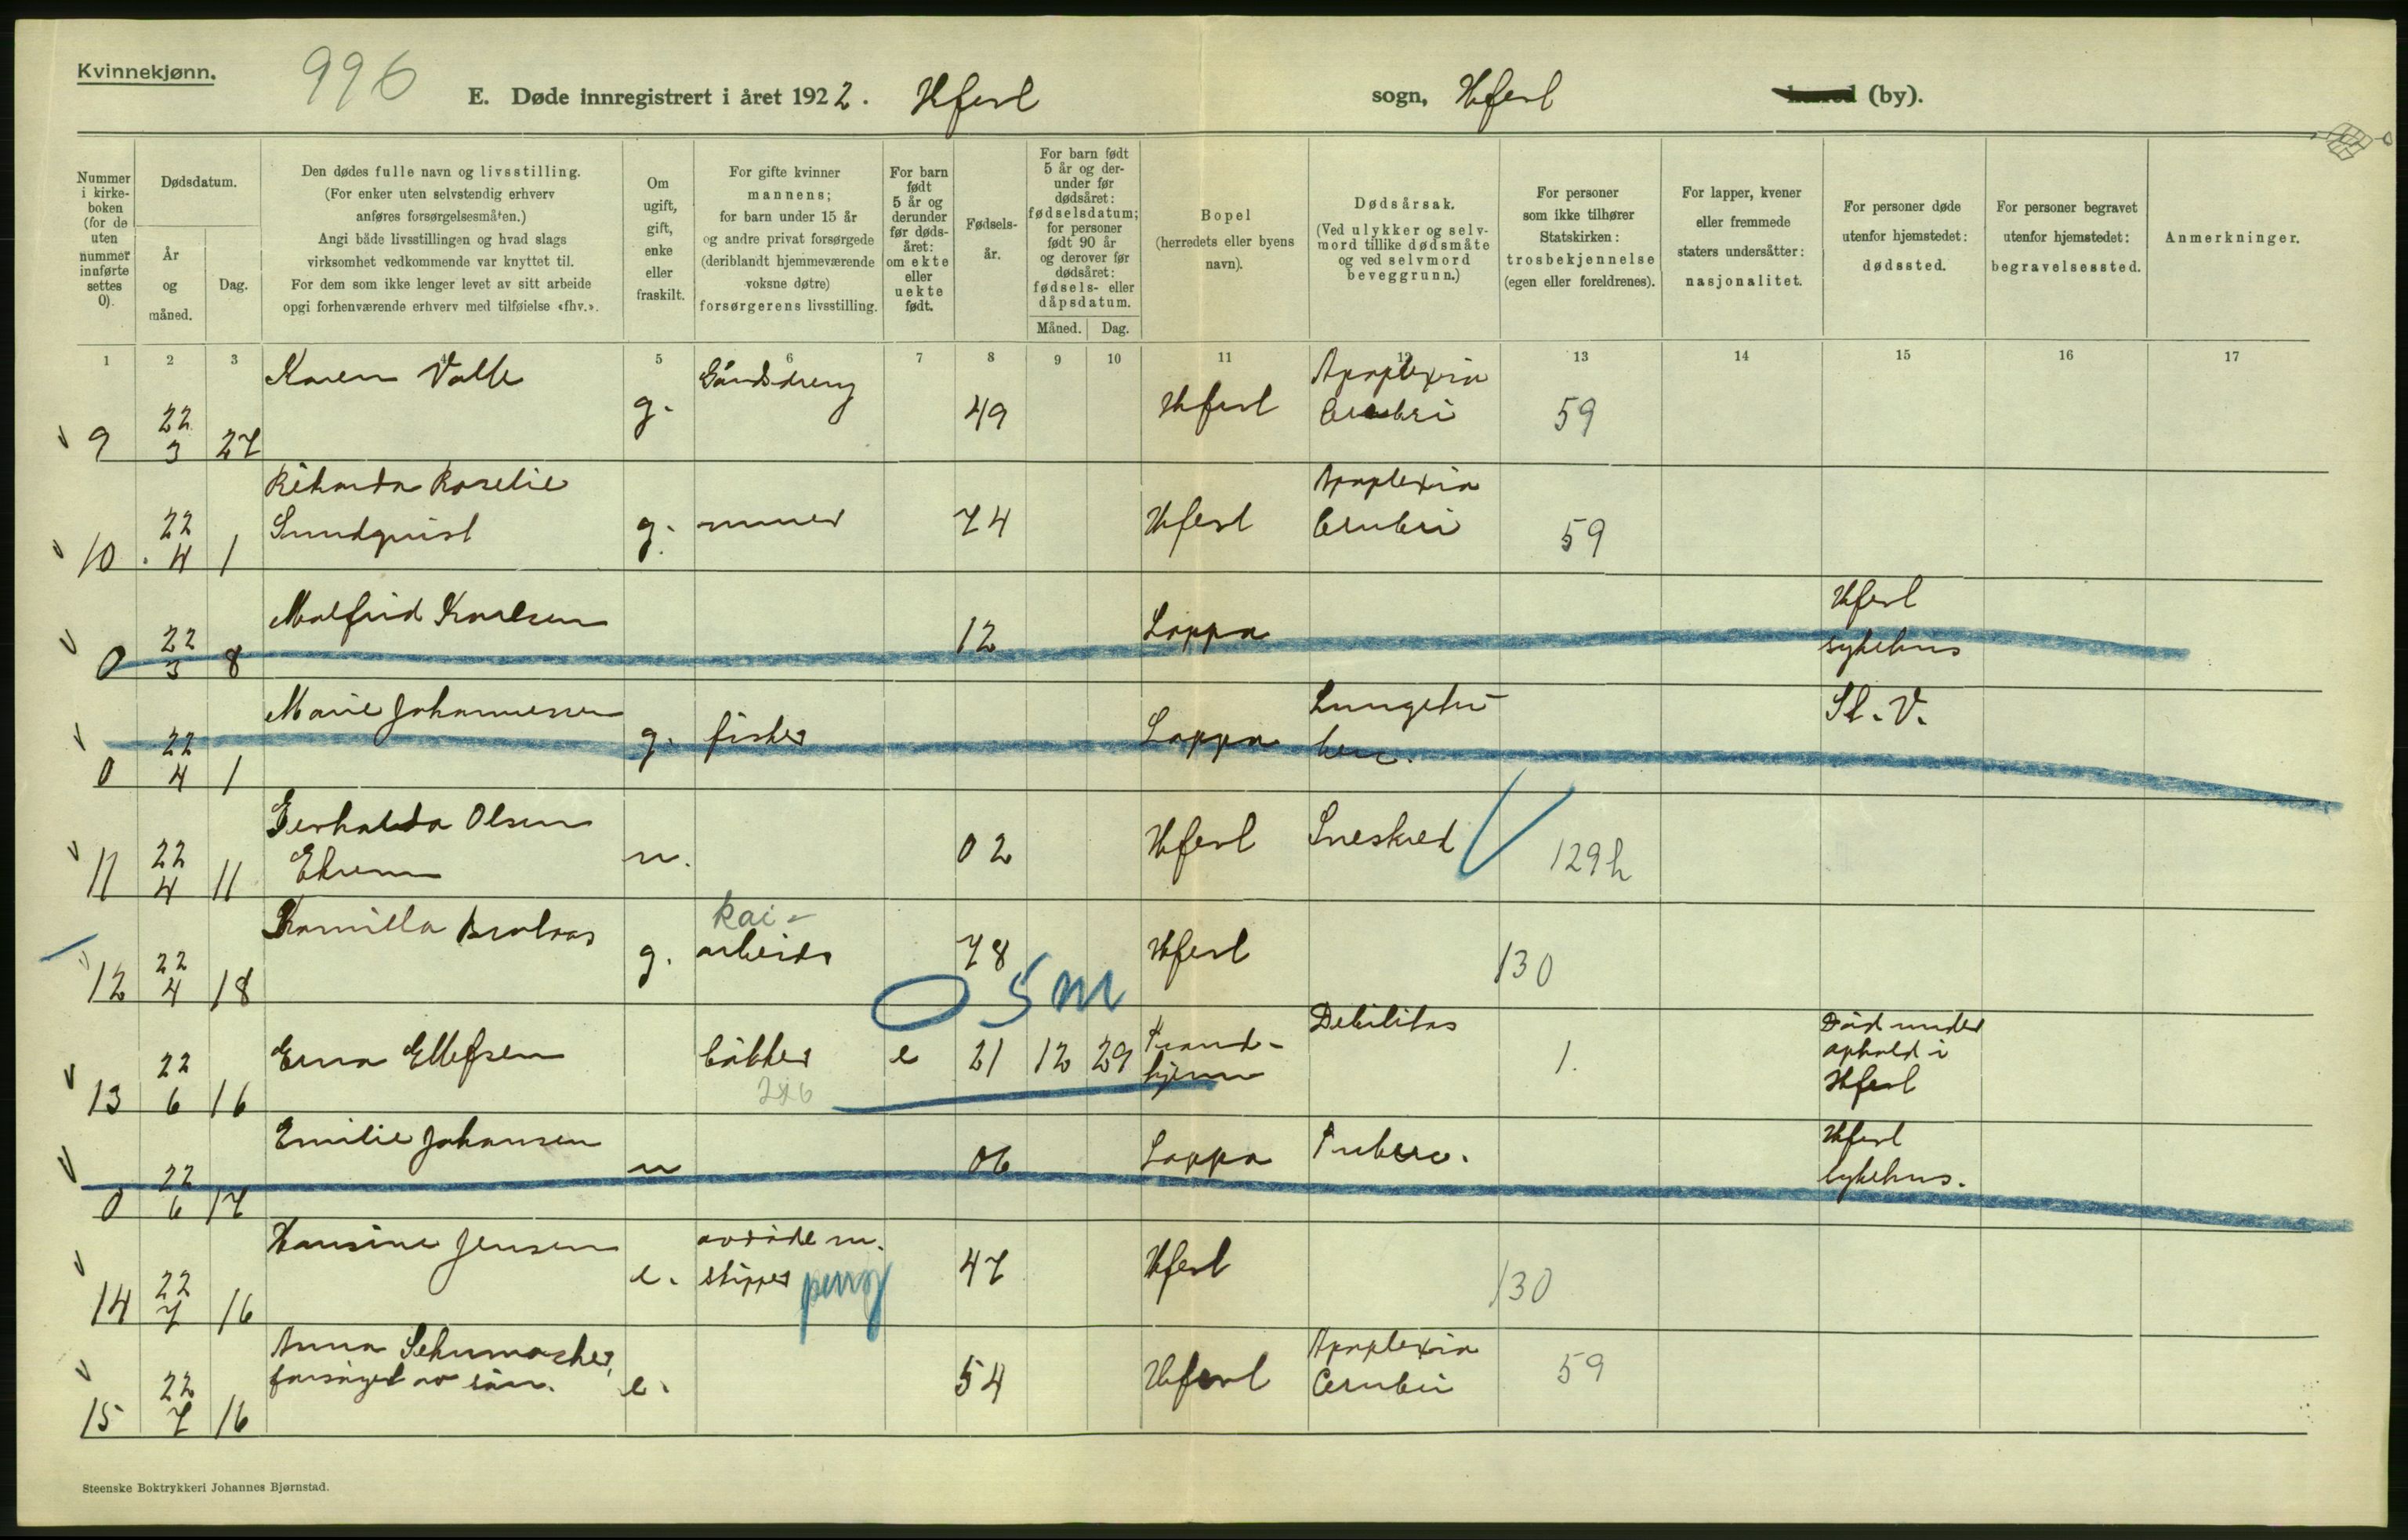 Kvinnekjønn.
996
E. Døde innregistrert i året 1922. Hfest sogn, Hfest (by).
Nummer i kirke-boken (for de uten nummer innførte settes 0).
Dødsdatum.
År og måned.
Dag.
Den dødes fulle navn og livsstilling.
(For enker uten selvstendig erhverv
anføres forsørgelsesmåten.)
Angi både livsstillingen og hvad slags
virksomhet vedkommende var knyttet til.
For dem som ikke lenger levet av sitt arbeide
opgi forhenværende erhverv med tilføielse «fhv.».
Om ugift, gift, enke eller fraskilt.
For gifte kvinner
mannens;
for barn under 15 år
og andre privat forsørgede
(deriblandt hjemmeværende
voksne døtre)
forsørgerens livsstilling.
For barn født 5 år og derunder før døds-året: om ekte eller uekte født.
Fødsels-år.
For barn født 5 år og der-under før dødsåret: fødselsdatum; for personer født 90 år og derover før dødsåret: fødsels- eller dåpsdatum.
Måned. Dag.
Bopel
(herredets eller byens navn).
Dødsårsak.
(Ved ulykker og selv-mord tillike dødsmåte og ved selvmord beveggrunn.)
For personer som ikke tilhører Statskirken: trosbekjennelse (egen eller foreldrenes).
For lapper, kvener eller fremmede staters undersåtter: nasjonalitet.
For personer døde utenfor hjemstedet: dødssted.
For personer begravet utenfor hjemstedet: begravelsessted.
Anmerkninger.
1 2 3 4 5 6 7 8 9 10 11 12 13 14 15 16 17
9 22 3 27 Karen Valle g. Gårdsdreng 49 Hfest Apoplexia Cerebri 59
10 22 4 1 Rikarda Roselie Sundquist g. murer 74 Hfest Apoplexia Cerebri 59
0 22 3 8 Malfrid Karlsen 12 Loppa Hfest sykehus
0 22 4 1 Marie Johannessen g. fisker Loppa Lungetu-berc. St. V.
11 22 4 11 Gerharda Olsen Ekrem u. 02 Hfest Sneskred 129h
12 22 4 18 Kamilla g. kai-arbeider 78 Hfest 130
0 5 m
13 22 6 16 Erna Ellefsen bakker e 21 12 29 Trond-hjem Debilitas 1. Død under ophold i Hfest
0 22 6 17 Emilie Johansen u 06 Loppa Tuberc. Hfest sykehus.
14 22 7 16 Hansine Jensen e. avdøde m. skipper peng 47 Hfest 130
15 22 7 16 Anna Schumacher, forsørget av sønn. e. 54 Hfest Apoplexia Cerebri 59
Steenske Boktrykkeri Johannes Bjørnstad.